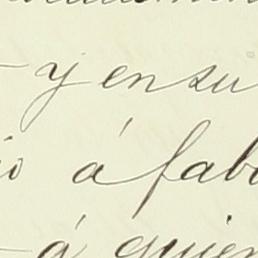 y en su
á fabo
á quien